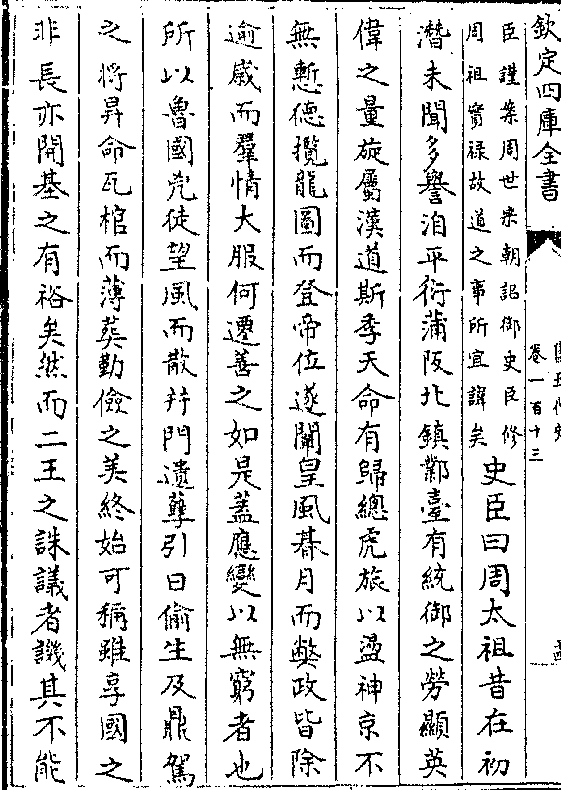 欽定四庫全書
卷一百十三
臣謹案周世宗朝詔御史臣修
周祖實祿故道之事所宜諱矣
史臣曰周太祖昔在初
潛未聞多譽洎平衍蒲阪北鎮鄴臺有統御之勞顯英
偉之量旋屬漢道斯季天命有歸總虎旅以盪神京不
無慙德攬龍圖而登帝位遂闡皇風朞月而弊政皆除
逾歲而羣情大服何遷善之如是蓋應變以無窮者也
所以魯國兇徒望風而散并門遺孽引日偷生及鼎駕
之將昇命瓦棺而薄葬勤儉之美終始可稱雖享國之
非長亦開基之有裕矣然而二王之誅議者譏其不能